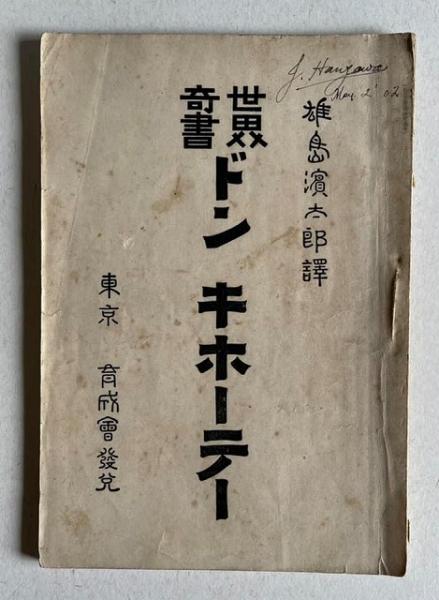 J. Hanzawa
May. 2' 02
雄島濱太郎譯
世界
奇書
ドン キホーテー
東京 育成會發兌